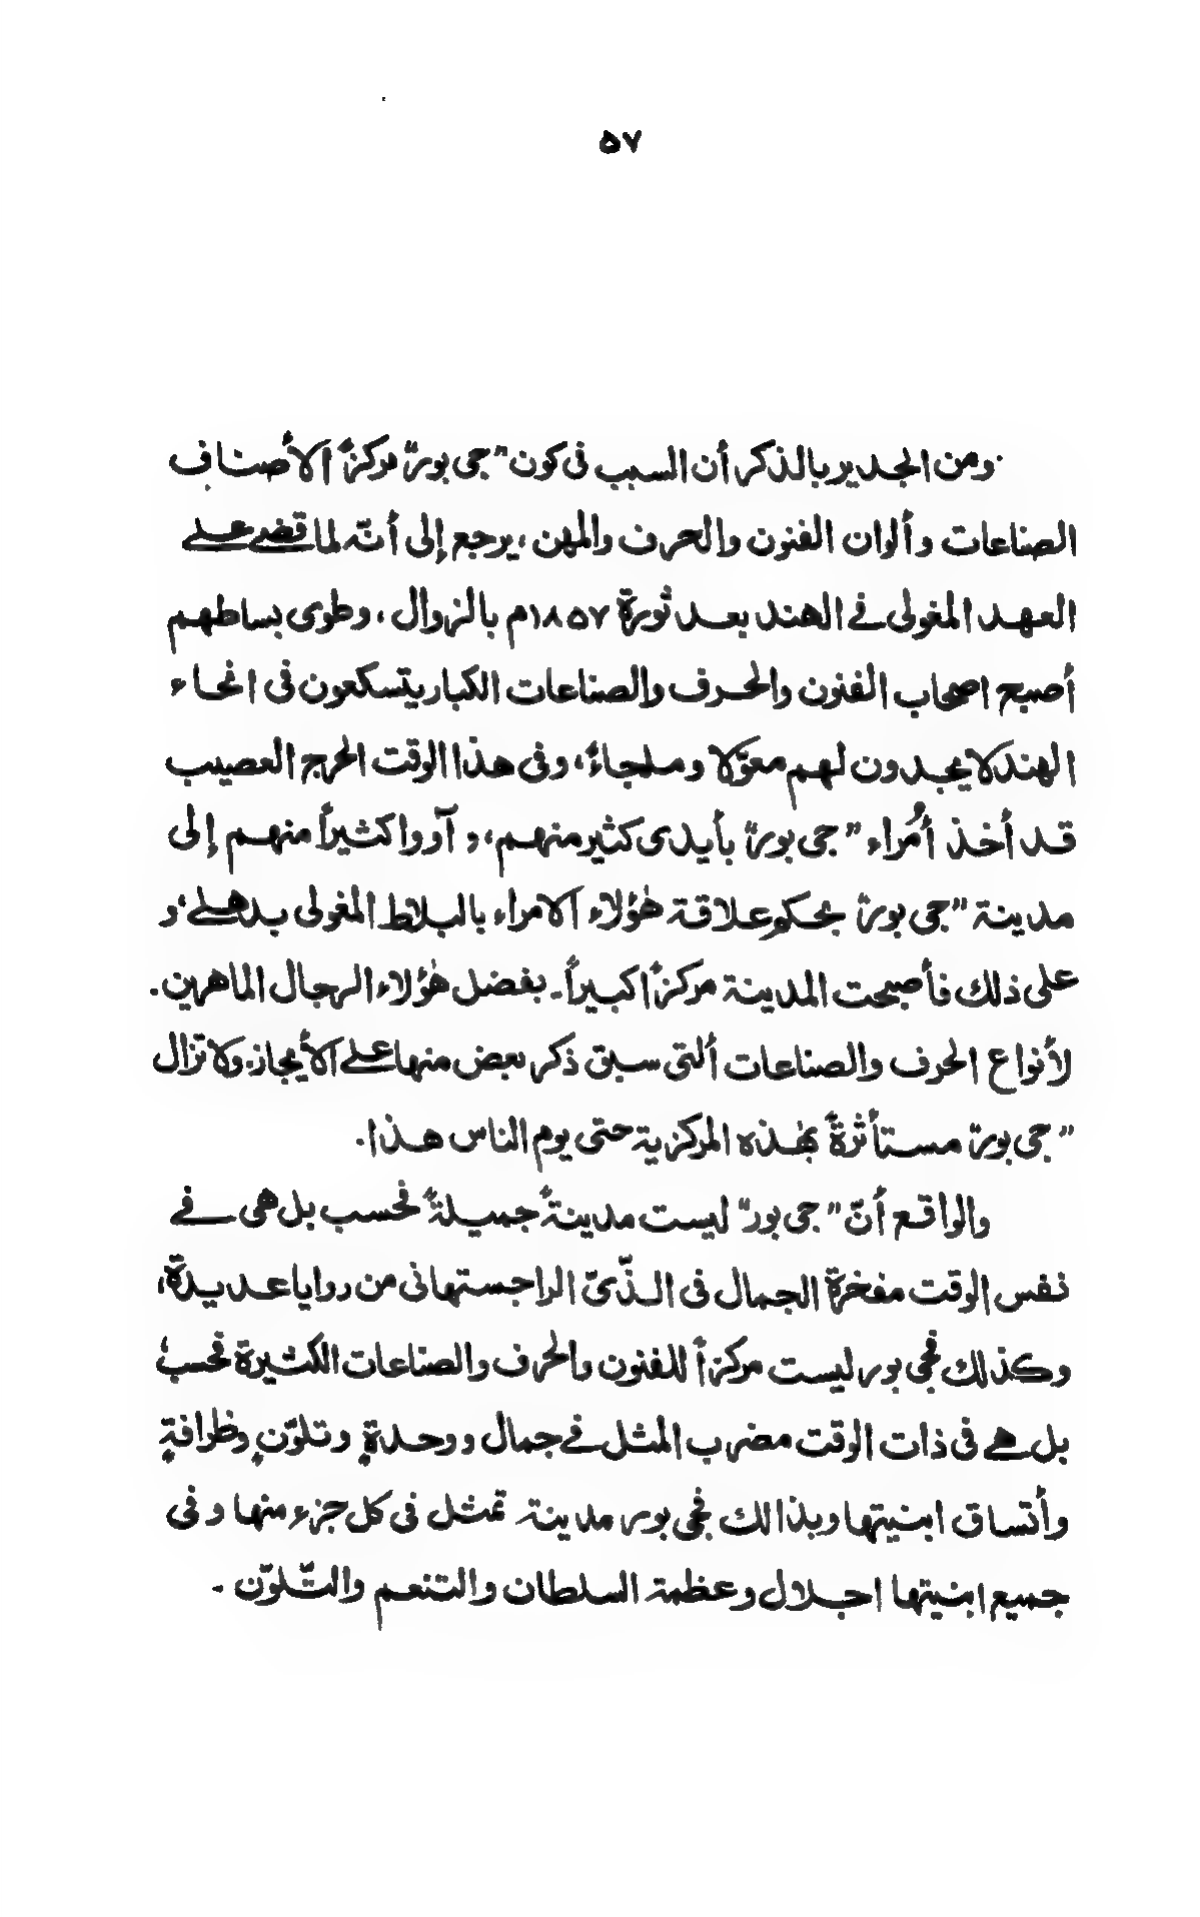 ٥٧
ومن الجدير بالذكر أن السبب فى كون "جى بور" مركزاً الأصناف
الصناعات وألوان الفنون والحرف والمهن، يرجع إلى أنّه لما قضے علے
العهد المغولى فے الهند بعد ثورة ١٨٥٧م بالزوال، وطوى بساطهم
أصبع اصحاب الفنون والحرف والصناعات الكبار يتسكعون فى انحاء
الهند لا يجدون لهم معوّلا وملجاءً، وفى هذا الوقت الحرج العصيب
قد أخذ أمُراء "جى بور" بأيدى كثير منهم، و آووا كثيراً منهم إلى
مدينة "جى بور" بحكم علاقة هؤلاء الامراء بالبلاط المغولى بدهلے، و
على ذلك فأصبحت المدينة مركزاً كبيراً۔ بفضل هؤلاء الرجال الماهرين۔
لأنواع الحرف والصناعات ألتى سبق ذكر بعض منها علے الأيجاز، ولا تزال
"جى بور" مستأثرةً بهذه المركزية حتى يوم الناس هذا.
والواقع أنّ "جى بور" ليست مدينةً جميلةً فحسب بل هى فے
نفس الوقت مفخرة الجمال فى الذّىّ الراجستهانى من روايا عديدة،
وكذلك فجى بور ليست مركزاً للفنون والحرف والصناعات الكثيرة فحسب،
بل هے فى ذات الوقت مضرب المثل فے جمال ووحدةٍ وتلوّنٍ وظرافةٍ
وأتساق ابنيتها وبذالك فجى بور مدينة تمثل فى كل جزء منها وفى
جميع ابنيتها اجلال وعظمة السلطان والتنعم والتّلوّن۔